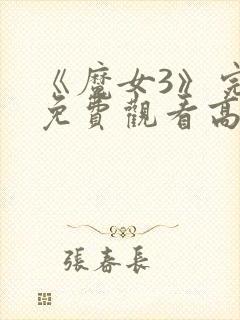 《魔女3》完
免費觀看高
張春長